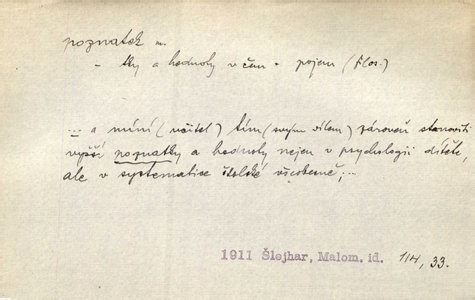 poznatek m.
– tky a hodnoty v čem = pojem (filos.)
... a míní (učitel) tím (svým dílem) zároveň stanoviti
vyšší poznatky a hodnoty nejen v psychologii dítěte,
ale v systematice školské všeobecně; ...
1911 Šlejhar, Malom. id. 114, 33.